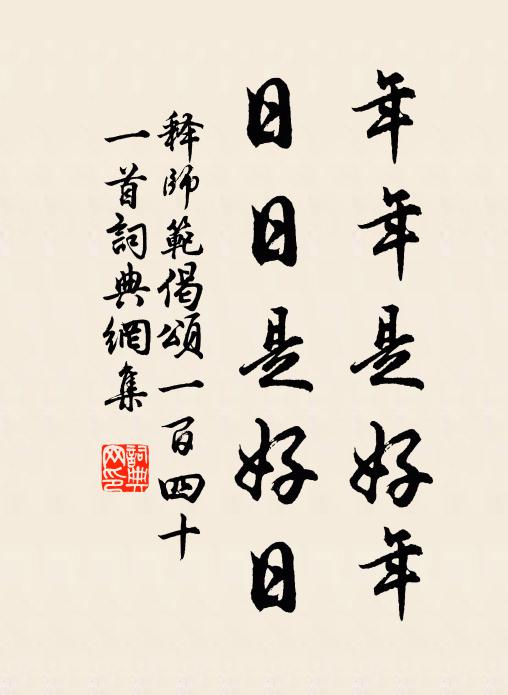 年年是好年
日日是好日
釋師範偈頌一百四十
一首詞典網集
詞典网印